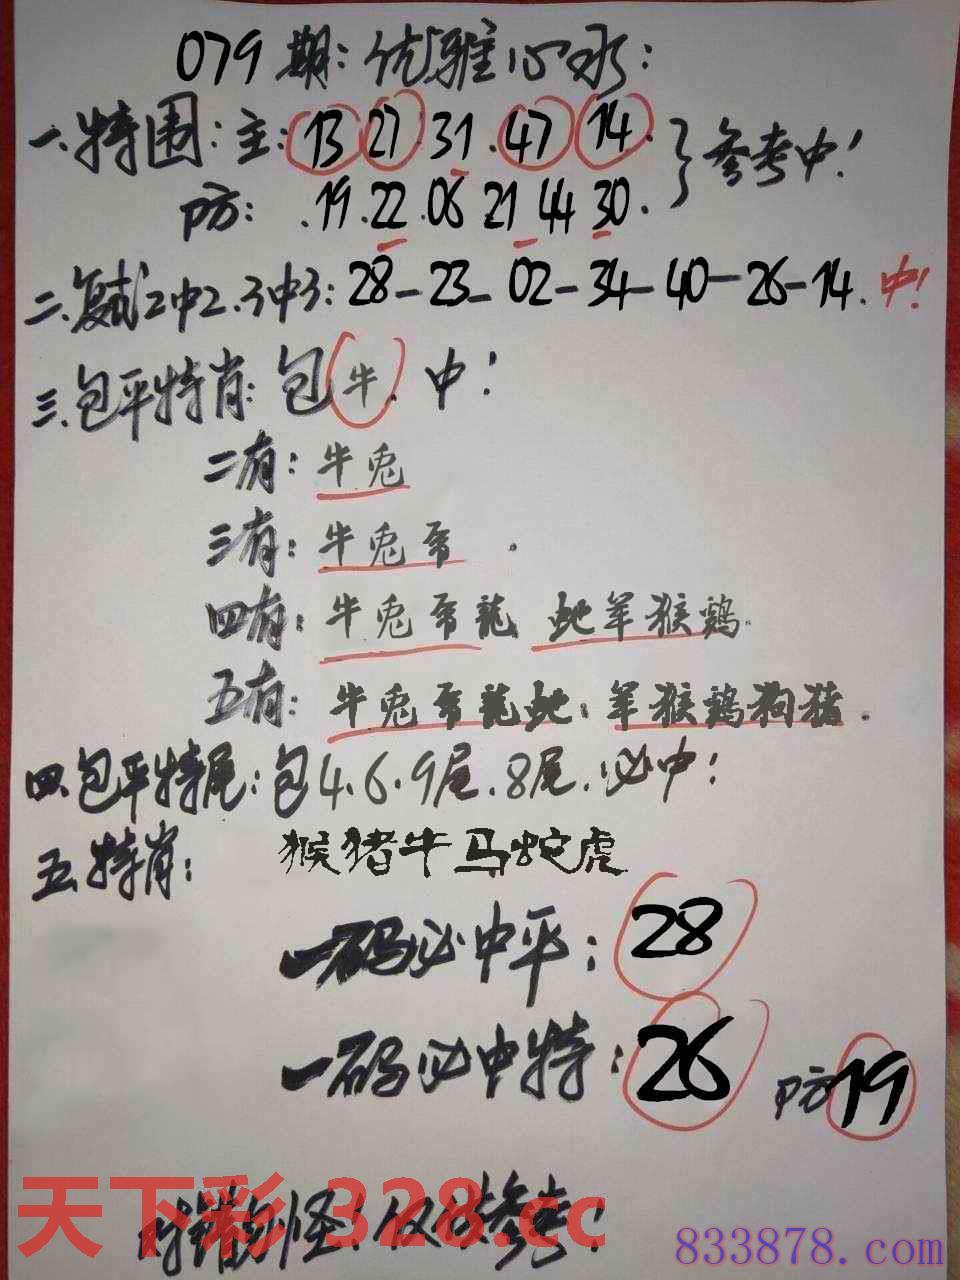 079期:优雅心水:
一.特围:主:13 27 31.47 14. 参考中!
防:.19.22.06 21 44 30.
二.复式2中2.3中3:28-23-02-34-40-26-14.中!
三.包平特肖:包牛.中!
二有:牛兔
三有:牛兔帝.
四有:牛兔帝龍 蛇羊猴鶏.
五有:牛兔帝龍蛇.羊猴鶏狗猪.
四.包平特尾:包4.6.9尾.8尾.必中!
五.特肖:猴猪牛马蛇虎
一码必中平:28
一码必中特:26 防19
天下彩 328.cc
怪!仅供参考!
833878.com